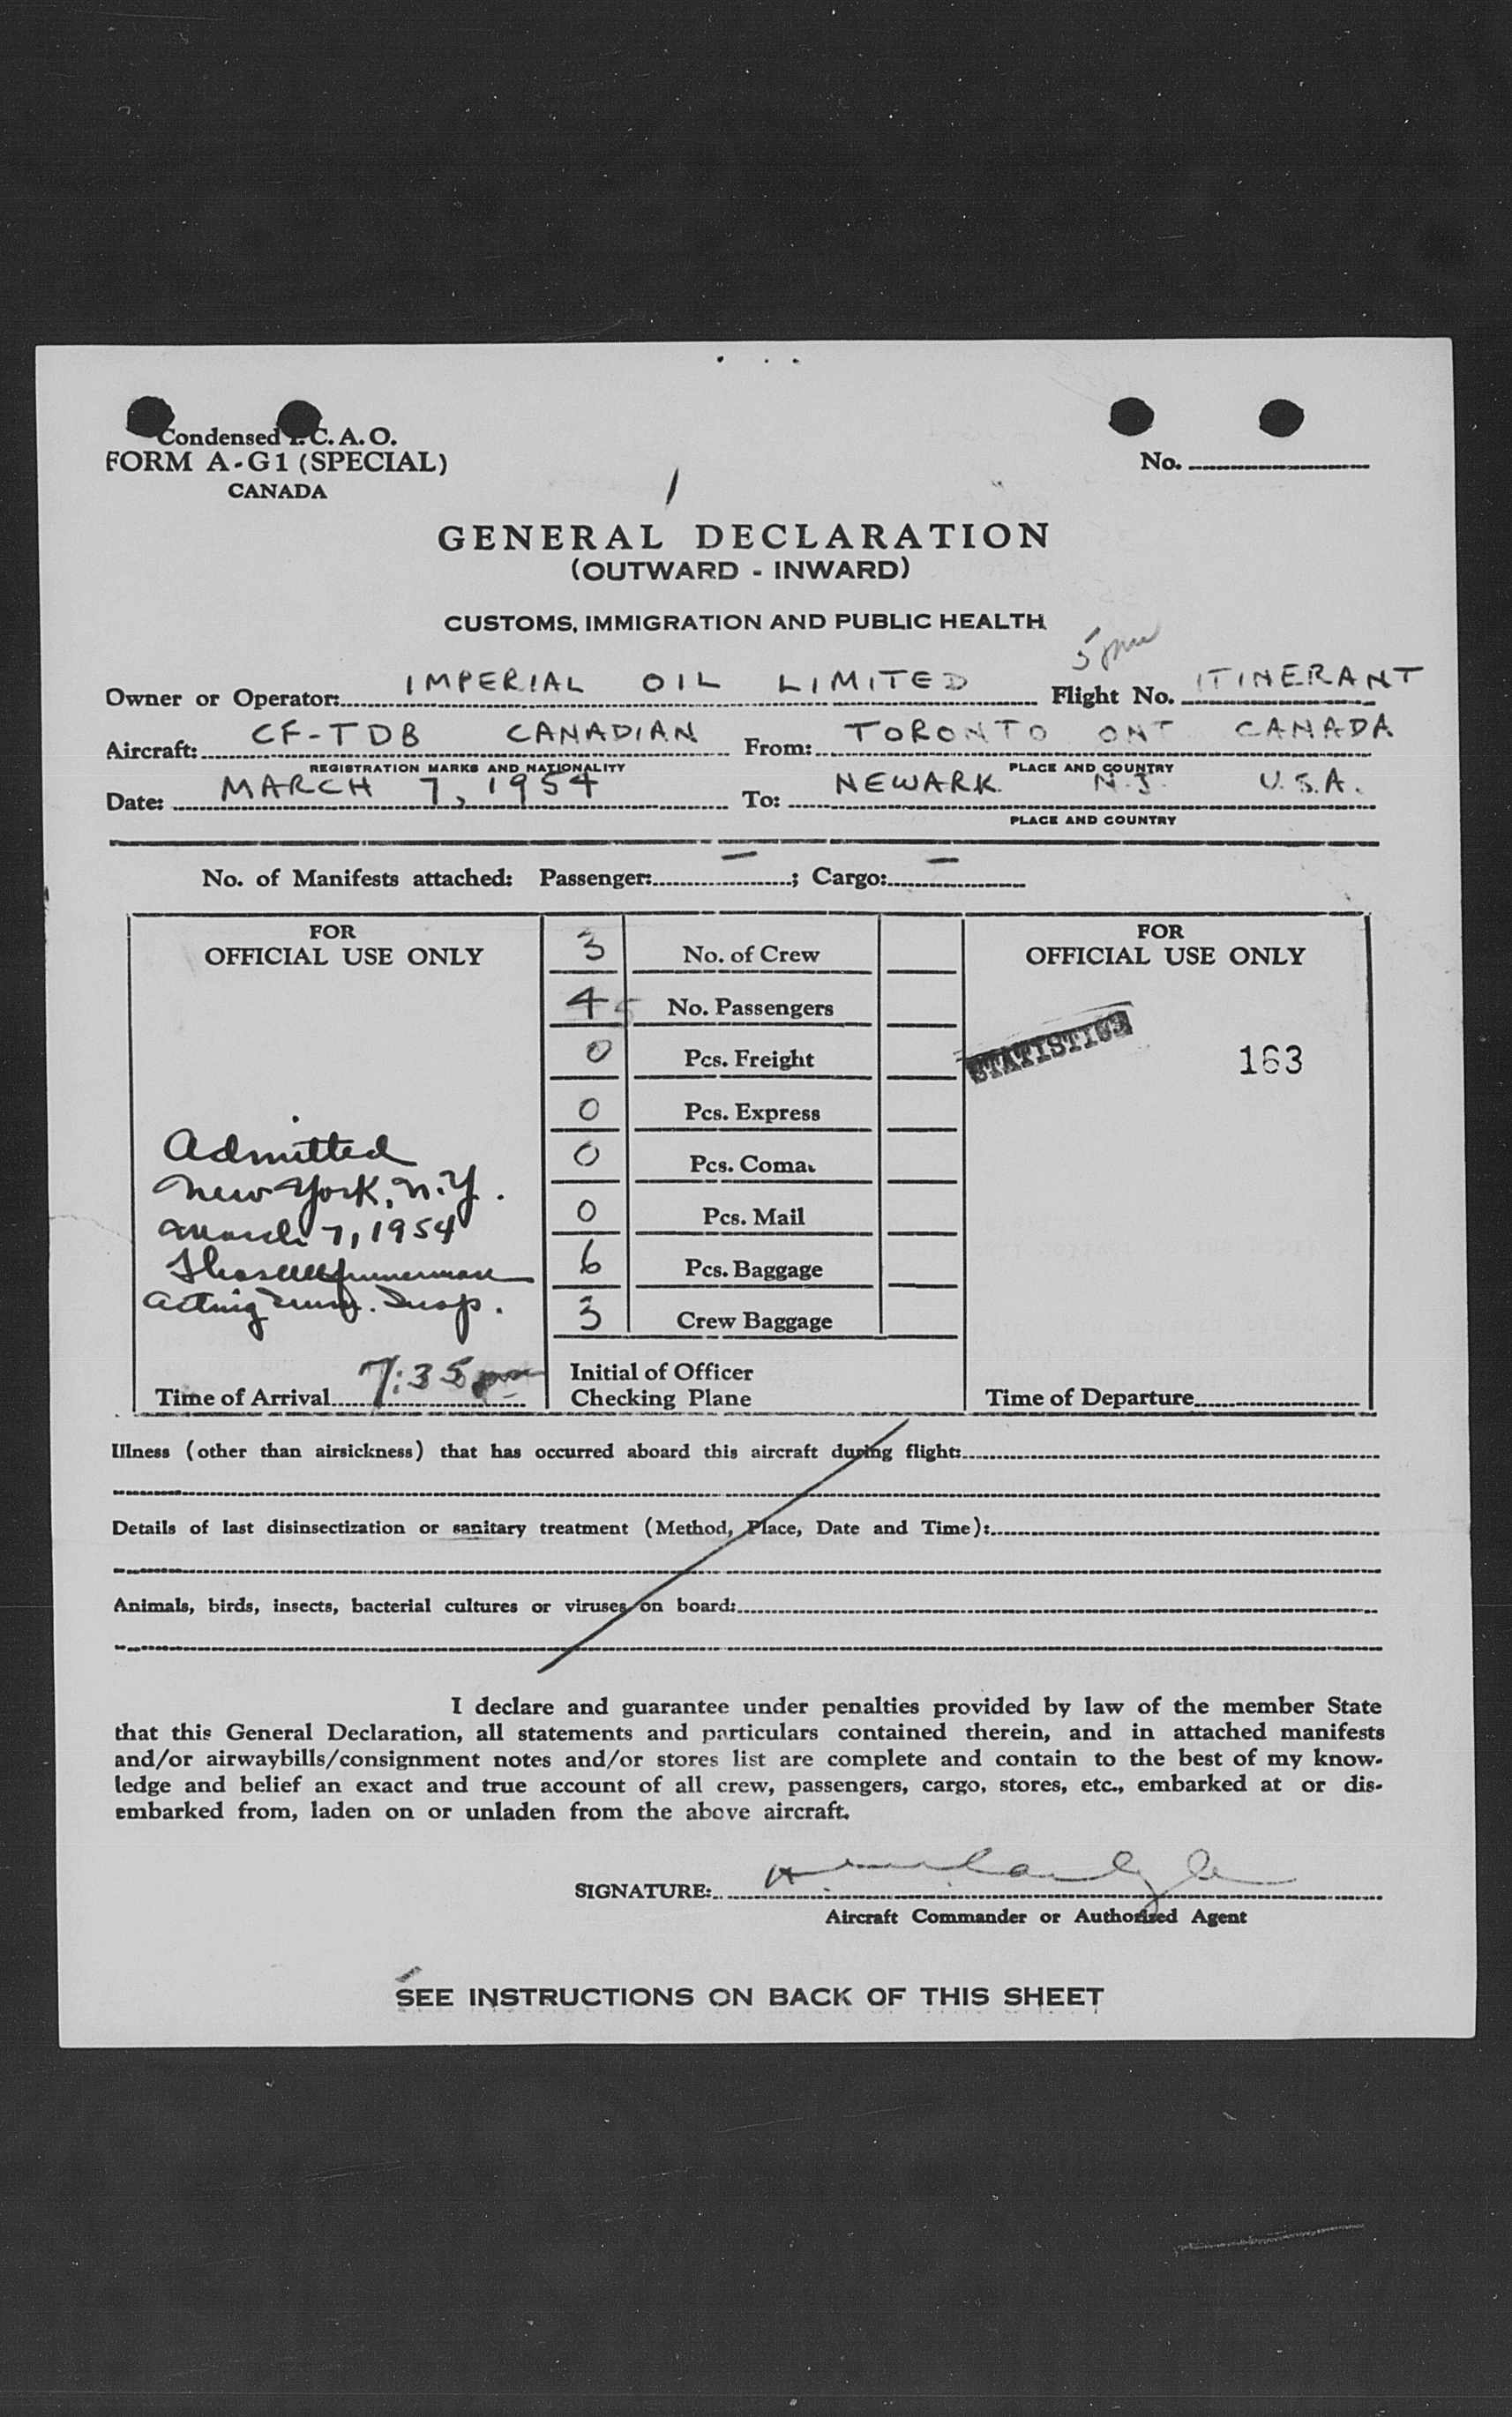 Condensed I. C. A. O.
FORM A-G1 (SPECIAL)
CANADA
No.
1
GENERAL DECLARATION
(OUTWARD - INWARD)
CUSTOMS, IMMIGRATION AND PUBLIC HEALTH
5 pm
Owner or Operator: IMPERIAL OIL LIMITED Flight No. ITINERANT
Aircraft: CF-TDB CANADIAN From: TORONTO ONT CANADA
REGISTRATION MARKS AND NATIONALITY PLACE AND COUNTRY
Date: MARCH 7, 1954 To: NEWARK N.J. U.S.A.
PLACE AND COUNTRY
No. of Manifests attached: Passenger: –; Cargo: –
FOR
OFFICIAL USE ONLY
Admitted
New York, N.Y.
March 7, 1954
Acting Imm. Insp.
Time of Arrival 7:35 pm
3 No. of Crew
4 5 No. Passengers
0 Pcs. Freight
0 Pcs. Express
0 Pcs. Comat
0 Pcs. Mail
6 Pcs. Baggage
3 Crew Baggage
Initial of Officer
Checking Plane
FOR
OFFICIAL USE ONLY
STATISTICS
163
Time of Departure
Illness (other than airsickness) that has occurred aboard this aircraft during flight:
Details of last disinsectization or sanitary treatment (Method, Place, Date and Time):
Animals, birds, insects, bacterial cultures or viruses on board:
I declare and guarantee under penalties provided by law of the member State
that this General Declaration, all statements and particulars contained therein, and in attached manifests
and/or airwaybills/consignment notes and/or stores list are complete and contain to the best of my know-
ledge and belief an exact and true account of all crew, passengers, cargo, stores, etc., embarked at or dis-
embarked from, laden on or unladen from the above aircraft.
SIGNATURE:
Aircraft Commander or Authorized Agent
SEE INSTRUCTIONS ON BACK OF THIS SHEET